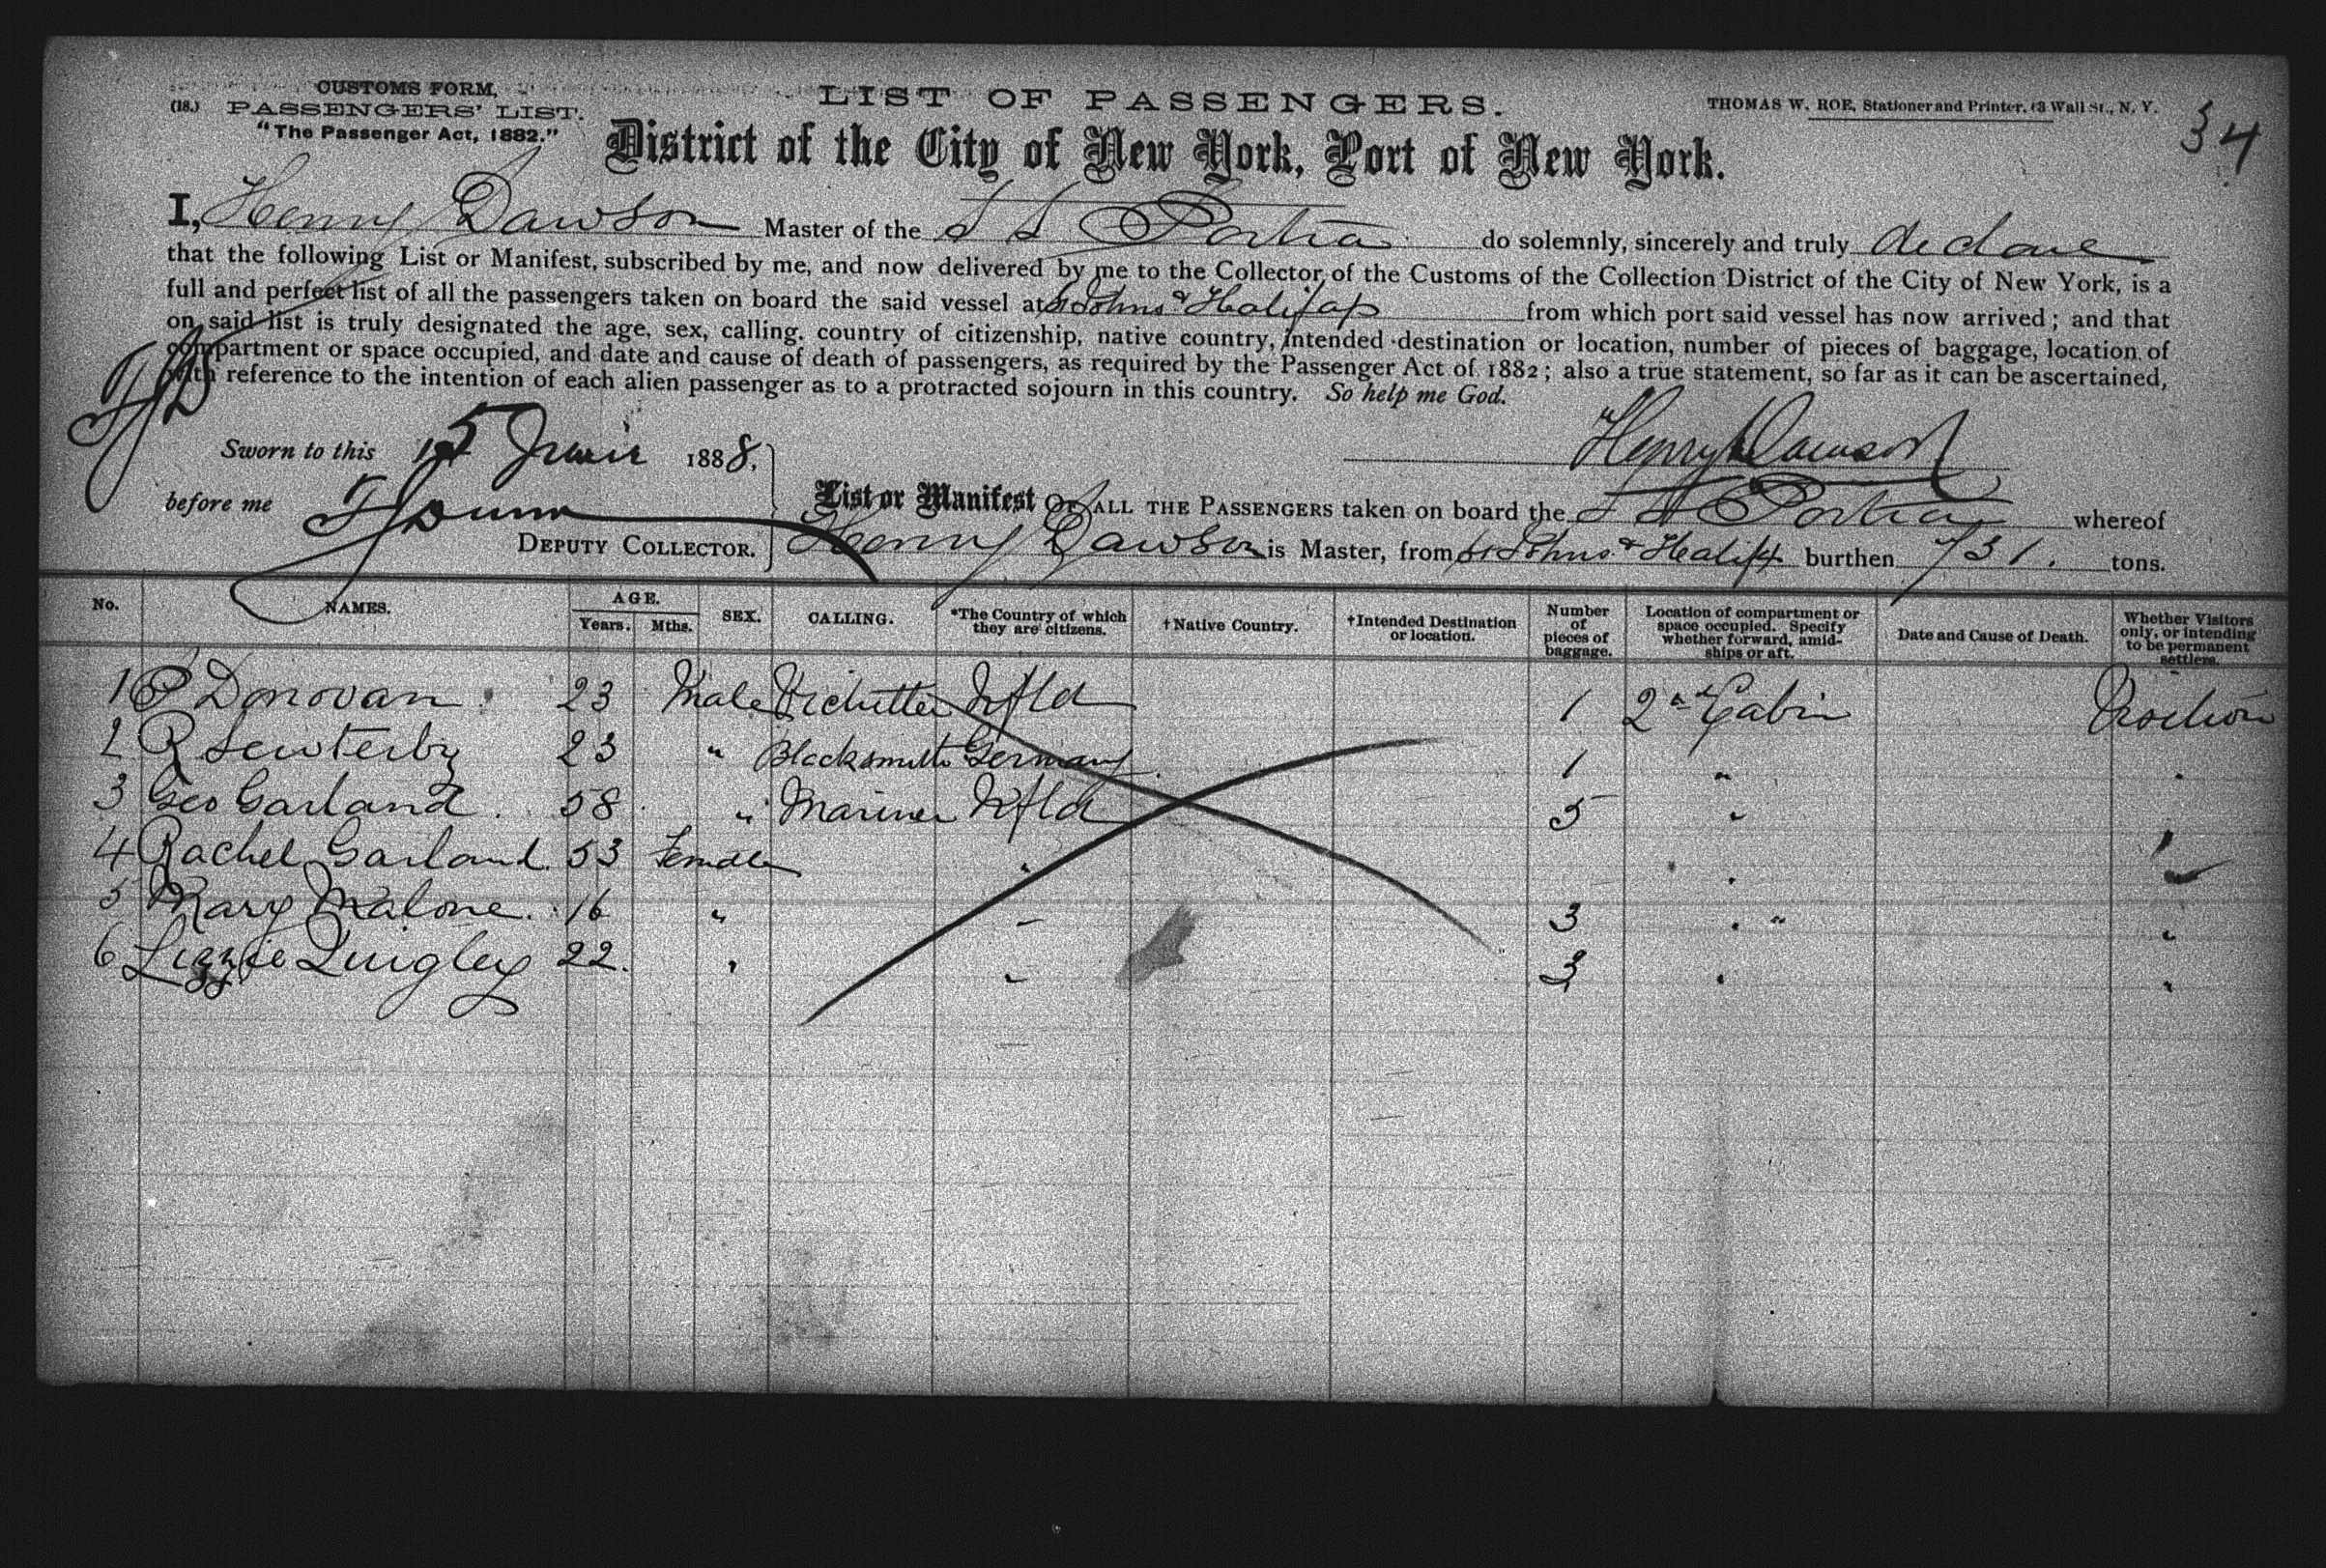 CUSTOMS FORM,
(18.) PASSENGERS' LIST.
"The Passenger Act, 1882."
LIST OF PASSENGERS.
THOMAS W. ROE, Stationer and Printer, 13 Wall St., N. Y.
34
District of the City of New York, Port of New York.
I, Henry Dawson Master of the S S Portia do solemnly, sincerely and truly declare
that the following List or Manifest, subscribed by me, and now delivered by me to the Collector of the Customs of the Collection District of the City of New York, is a
full and perfect list of all the passengers taken on board the said vessel at St Johns & Halifax from which port said vessel has now arrived; and that
on said list is truly designated the age, sex, calling, country of citizenship, native country, intended destination or location, number of pieces of baggage, location of
compartment or space occupied, and date and cause of death of passengers, as required by the Passenger Act of 1882; also a true statement, so far as it can be ascertained,
with reference to the intention of each alien passenger as to a protracted sojourn in this country. So help me God.
Sworn to this 15 June 1888,
Henry Dawson
before me
DEPUTY COLLECTOR.
List or Manifest OF ALL THE PASSENGERS taken on board the S S Portia whereof
Henry Dawson is Master, from St Johns & Halifx burthen 731. tons.
No. NAMES. AGE. Years. Mths. SEX. CALLING. *The Country of which they are citizens. †Native Country. †Intended Destination or location. Number of pieces of baggage. Location of compartment or space occupied. Specify whether forward, amidships or aft. Date and Cause of Death. Whether Visitors only, or intending to be permanent settlers.
1 P Donovan 23 Male Nfld 1 2nd Cabin
2 R 23 " Blacksmith Germany 1 " "
3 Geo Garland 58 " Mariner Nfld 5 " "
4 Rachel Garland 53 Female " " "
5 Mary Malone 16 " " 3 " "
6 Lizzie Quigley 22 " " 3 " "